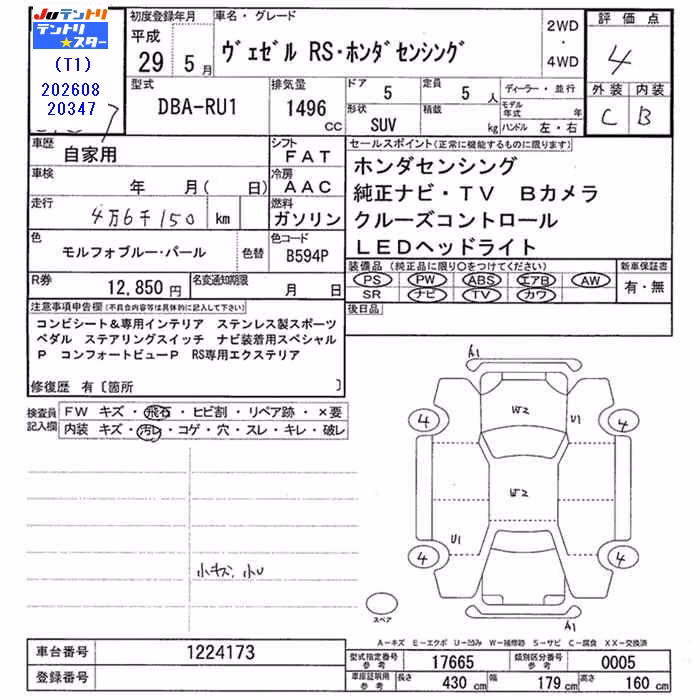 JUテントリ
テントリ
★スター
(T1)
202608
20347
初度登録年月 車名・グレード 評価点
平成 29 5月 ヴェゼル RS・ホンダセンシング 2WD・4WD 4
外装 内装
C B
型式 DBA-RU1 排気量 1496 CC
ドア 5 定員 5 人 ディーラー・並行
形状 SUV 積載 kg モデル年式 年
ハンドル 左・右
車歴 自家用 シフト FAT
車検 年 月( 日) 冷房 AAC
走行 4万6千150 km 燃料 ガソリン
色 モルフォブルー・パール 色替 色コード B594P
R券 12,850 円 名変通知期限 月 日
セールスポイント(正常に機能するものに限ります)
ホンダセンシング
純正ナビ・TV Bカメラ
クルーズコントロール
LEDヘッドライト
装備品(純正品に限り○をつけてください) 新車保証書
PS PW ABS エアB AW 有・無
SR ナビ TV カワ
後日品
注意事項申告欄(不具合内容等は具体的に記入して下さい)
コンビシート&専用インテリア ステンレス製スポーツ
ペダル ステアリングスイッチ ナビ装着用スペシャル
P コンフォートビューP RS専用エクステリア
修復歴 有〔箇所 〕
検査員 FW キズ・飛石・ヒビ割・リペア跡・×要
記入欄 内装 キズ・汚レ・コゲ・穴・スレ・キレ・破レ
小キズ、小U
Y1
4 W2 U1 4
W2
U1
4 4
Y1
スペア
A-キズ E-エクボ U-凹み W-補修跡 S-サビ C-腐食 XX-交換済
車台番号 1224173
登録番号
型式指定番号 参考 17665 類別区分番号 参考 0005
車庫証明用 参考 長さ 430 cm 幅 179 cm 高さ 160 cm